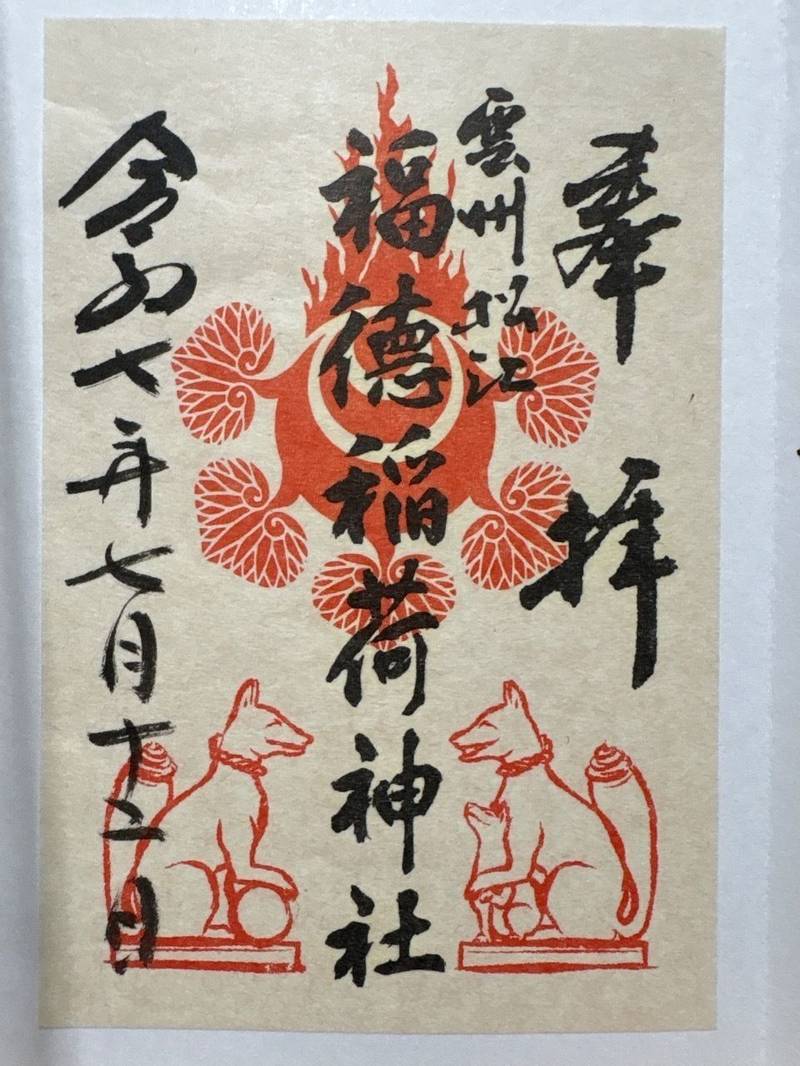 奉拝
雲州松江
福徳稲荷神社
令和七年七月十二日